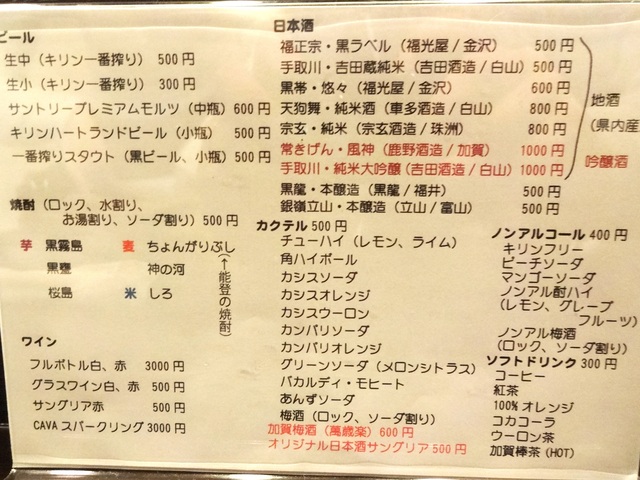 ビール
生中（キリン一番搾り） 500円
生小（キリン一番搾り） 300円
サントリープレミアムモルツ（中瓶）600円
キリンハートランドビール（小瓶） 500円
一番搾りスタウト（黒ビール、小瓶）500円
焼酎（ロック、水割り、
お湯割り、ソーダ割り）500円
芋 黒霧島 麦 ちょんがりぶし
黒甕 神の河
桜島 米 しろ
（↑能登の焼酎）
ワイン
フルボトル白、赤 3000円
グラスワイン白、赤 500円
サングリア赤 500円
CAVAスパークリング 3000円
日本酒
福正宗・黒ラベル（福光屋/金沢） 500円
手取川・吉田蔵純米（吉田酒造/白山）500円
黒帯・悠々（福光屋/金沢） 600円
天狗舞・純米酒（車多酒造/白山） 800円
宗玄・純米（宗玄酒造/珠洲） 800円
常きげん・風神（鹿野酒造/加賀） 1000円
手取川・純米大吟醸（吉田酒造/白山）1000円
地酒
（県内産
吟醸酒
黒龍・本醸造（黒龍/福井） 500円
銀嶺立山・本醸造（立山/富山） 500円
カクテル 500円
チューハイ（レモン、ライム）
角ハイボール
カシスソーダ
カシスオレンジ
カシスウーロン
カンパリソーダ
カンパリオレンジ
グリーンソーダ（メロンシトラス）
バカルディ・モヒート
あんずソーダ
梅酒（ロック、ソーダ割り）
加賀梅酒（萬歳楽）600円
オリジナル日本酒サングリア500円
ノンアルコール 400円
キリンフリー
ピーチソーダ
マンゴーソーダ
ノンアル酎ハイ
（レモン、グレープ
フルーツ）
ノンアル梅酒
（ロック、ソーダ割り）
ソフトドリンク 300円
コーヒー
紅茶
100% オレンジ
コカコーラ
ウーロン茶
加賀棒茶（HOT）